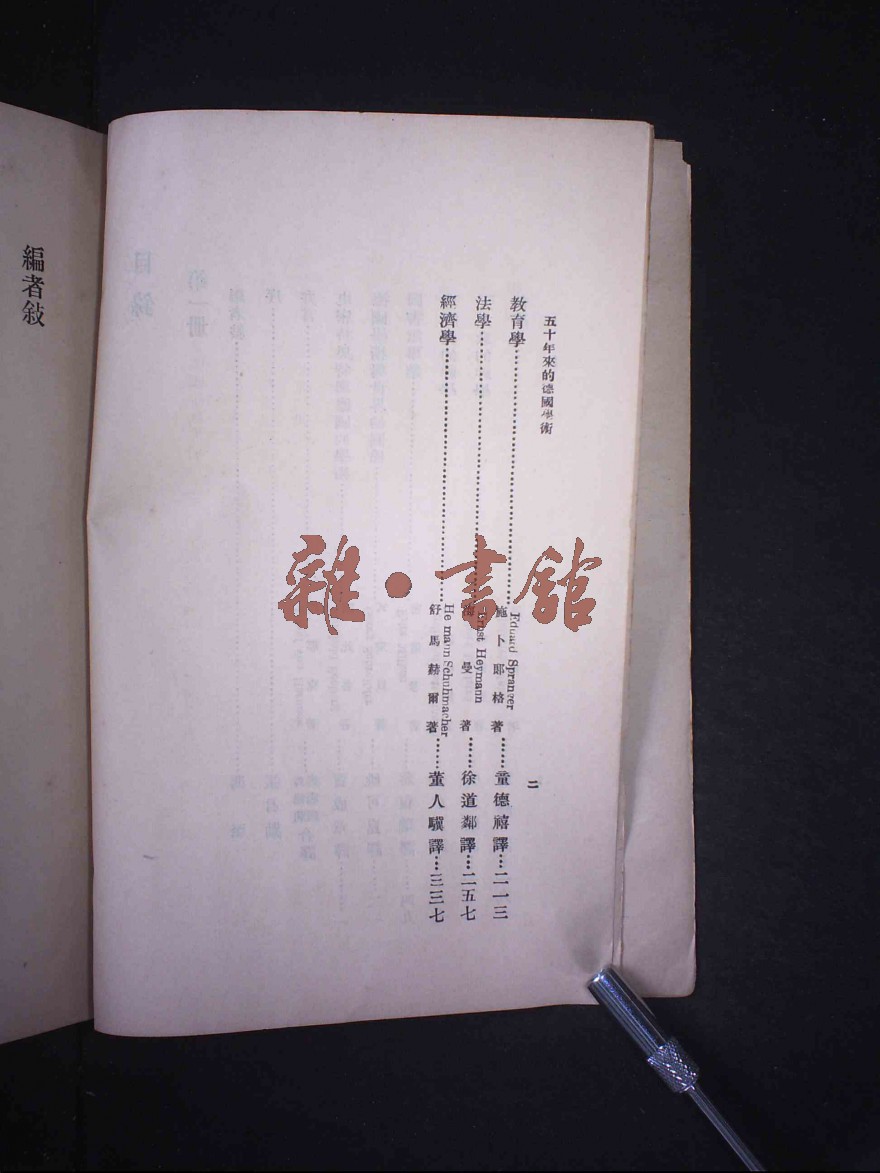 五十年來的德國學術
二
教育學 Eduard Spranger 施卜郎格著 童德禧譯 二一三
法學 Ernst Heymann 海曼著 徐道鄰譯 二五七
經濟學 He mann Schuhmacher 舒馬赫爾著 董人驥譯 三三七
編者敍
目錄
第一冊
雜·書館